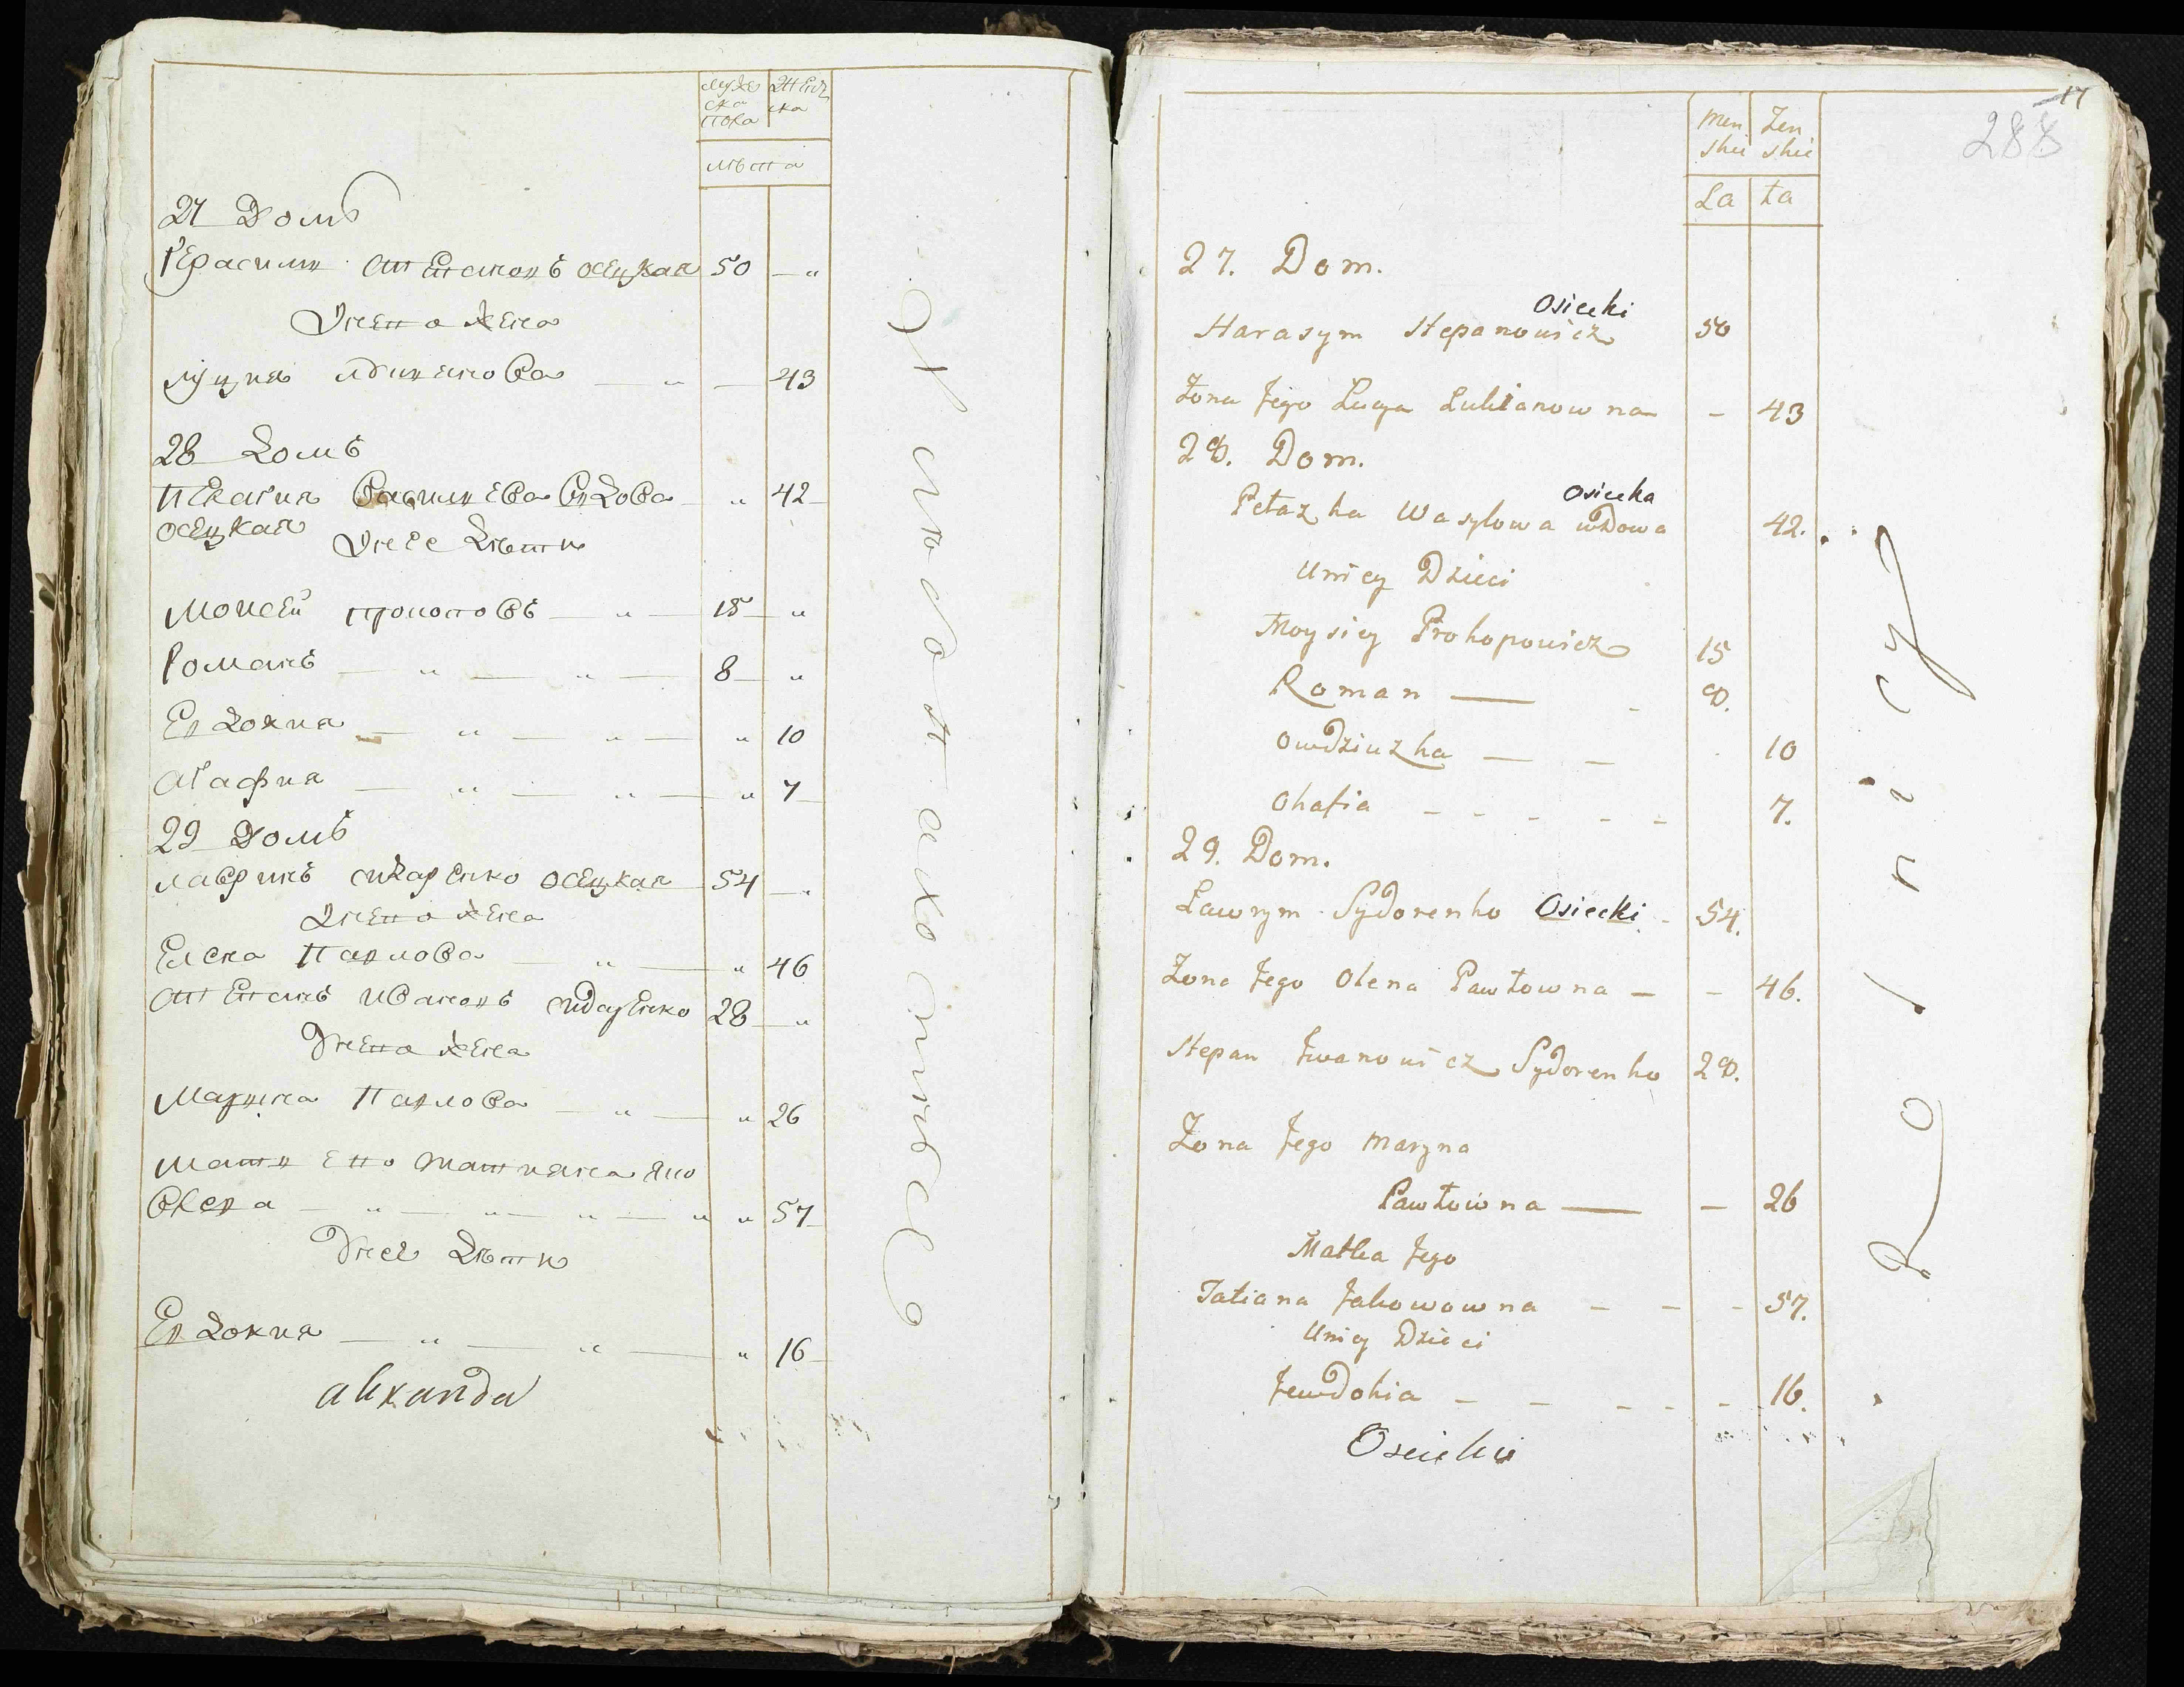 мужеска пола
женска
лѣта
27 Домъ
Герасим Степановъ осецкая 50 — „
У него жена
Луция лукиянова — „ — 43
28 Домъ
Пелагия Василиева вдова „ 42
осецкая
У нее дѣти
Моисей прокоповъ — „ — 15 — „
Романъ — „ — „ — 8 — „
Евдокия — „ — „ — „ 10
Агафия — „ — „ — „ 7
29 Домъ
Лавринъ сидаренко осецкая 54 — „
У него жена
Елена Павлова — „ — „ 46
Степанъ Ивановъ сидаренко 28 — „
У него жена
Марина Павлова — „ — „ 26
Мати его татияна Яко
влева — „ — „ „ — „ „ 57
У нее дѣти
Евдокия — „ — „ — „ 16
alexandra
17
288
Men
skie
Żen
skie
La ta
27. Dom.
Osiecki
Harasym Stepanowicz 50
Żona Jego Lucya Lukianowna - 43
28. Dom.
Osiecka
Pełazka Wasylowa wdowa 42.
U niey Dzieci
Moysiey Prokopowicz 15
Roman — - 8.
Owdziuzka — — 10
Ohafia - - - - - 7.
29. Dom.
Ławrym Sydorenko Osiecki - 54.
Żona Jego Olena Pawłowna — - 46.
Stepan Iwanowicz Sydorenko 28.
Żona Jego Maryna
Pawłowna — — 26
Matka Jego
Tatiana Jakowowna - - - 57.
U niey Dzieci
Jewdokia - - - - - 16.
Osiecki
Rolnicy